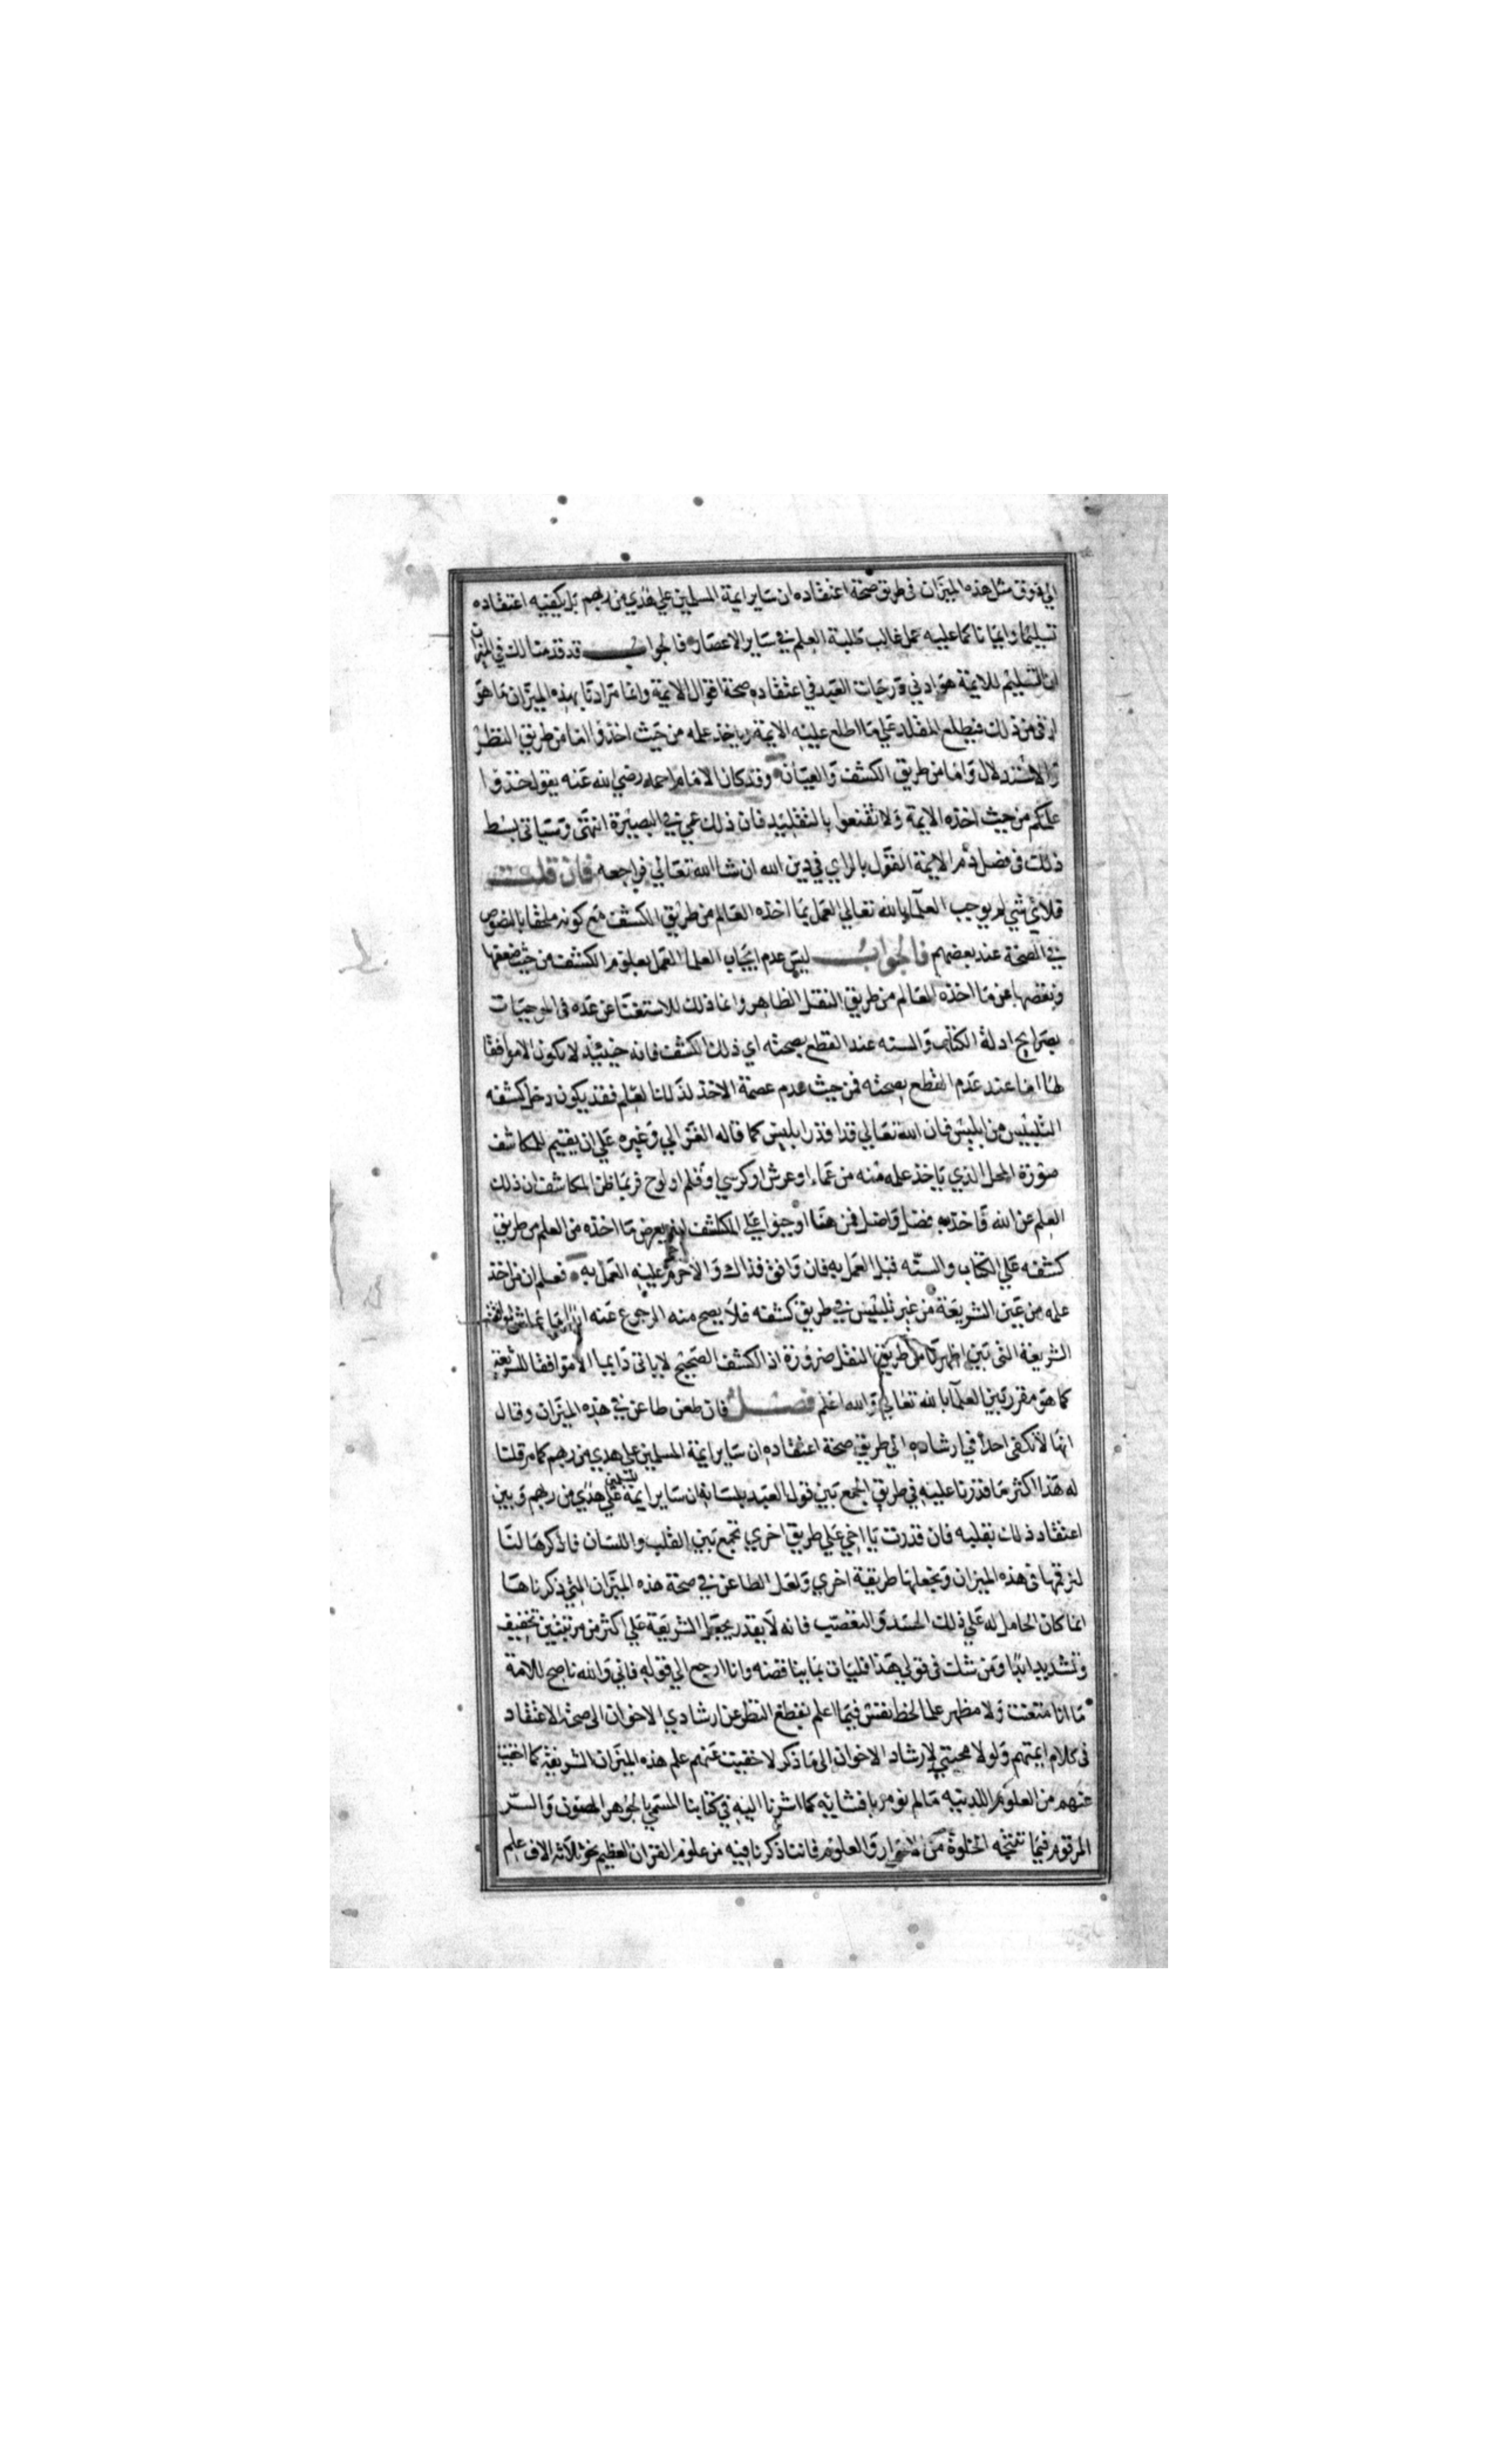 الي ذوق مثل هذه الميزان في طريق صحة اعتقاده ان ساير ايمة المسلمين علي هدي من ربهم بل يكفيه اعتقاده
تسليما وايمانا كما عليه عمل غالب طلبة العلم في ساير الاعصار فالجواب قد قدمنا لك في الميزان
ان التسليم للايمة هو ادني درجات العبد في اعتقاده صحة اقوال الايمة وانما مرادنا بهذه الميزان ما هو
ارقي من ذلك فيطلع المقلد علي ما اطلع عليه الايمة وياخذ علمه من حيث اخذوا اما من طريق النظر
والاستدلال واما من طريق الكشف والعيان وقد كان الامام احمد رضي الله عنه يقول خذوا
علمكم من حيث اخذه الايمة ولا تقنعوا بالتقليد فان ذلك عمي في البصيرة انتهي وسياتي بسط
ذلك في فصل ذم الايمة القول بالراي في دين الله ان شا الله تعالي فراجعه فان قلت
فلاي شي لم يوجب العلما بالله تعالي العمل بما اخذه العالم من طريق الكشف مع كونه ملحقا بالنصوص
في الصحة عند بعضهم فالجواب ليس عدم ايجاب العلما العمل بعلوم الكشف من حيث ضعفها
ونقصها عن ما اخذه العالم من طريق النقل الظاهر وانما ذلك للاستغنا عن عده في الموجبات
بصرايح ادلة الكتاب والسنه عند القطع بصحته اي ذلك الكشف فانه حينيذ لا يكون الا موافقا
لها اما عند عدم القطع بصحته فمن حيث عدم عصمة الاخذ لذلك العلم فقد يكون دخل كشفه
التلبيس من ابليس فان الله تعالي قد اقدر ابليس كما قاله الغزالي وغيره علي ان يقيم للمكاشف
صورة المحل الذي ياخذ علمه منه من عماء او عرش او كرسي او قلم او لوح فربما ظن المكاشف ان ذلك
العلم عن الله فاخذ به فضل واضل فمن هنا اوجبوا علي المكاشف انه يعرض ما اخذه من العلم من طريق
كشفه علي الكتاب والسنه قبل العمل به فان وافق فذاك والا حرم عليه العمل به فعلم ان من اخذ
علمه من عين الشريعة من غير تلبيس في طريق كشفه فلا يصح منه الرجوع عنه ابدا ما عاش لموافقته
الشريعة التي بين اظهرنا من طريق النقل ضرورة اذ الكشف الصحيح لا ياتي دايما الا موافقا للشريعة
كما هو مقرر بين العلما بالله تعالي والله اعلم فصل فان طعن طاعن في هذه الميزان وقال
انها لا تكفي احدا في ارشاده الي طريق صحة اعتقاده ان ساير ايمة المسلمين علي هدي من ربهم كما مر قلنا
له هذا اكثر ما قدرنا عليه في طريق الجمع بين قول العبد بلسانه ان ساير ايمة المسلمين علي هدي من ربهم وبين
اعتقاد ذلك بقلبه فان قدرت يا اخي علي طريق اخري تجمع بين القلب واللسان فاذكرها لنا
لنرقمها في هذه الميزان ونجعلها طريقة اخري ولعل الطاعن في صحة هذه الميزان التي ذكرناها
انما كان الحامل له علي ذلك الحسد والتعصب فانه لا يقدر يجعل الشريعة علي اكثر من مرتبتين تخفيف
وتشديد ابدا ومن شك في قولي هذا فليات بما يناقضه وانا ارجع الي قوله فاني والله ناصح للامة
ما انا متعنت ولا مظهر علما لحظ نفس فيما اعلم بقطع النظر عن ارشادي الاخوان الي صحة الاعتقاد
في كلام ايمتهم ولولا محبتي لارشاد الاخوان الي ما ذكر لاخفيت عنهم علم هذه الميزان الشريفة كما اخفيت
عنهم من العلوم اللدنيه ما لم نومر بافشايه كما اشرنا اليه في كتابنا المسمي بالجوهر المصون والسر
المرقوم فيما تنتجه الخلوة من الاسرار والعلوم فاننا ذكرنا فيه من علوم القران العظيم نحو ثلاثة الاف علم